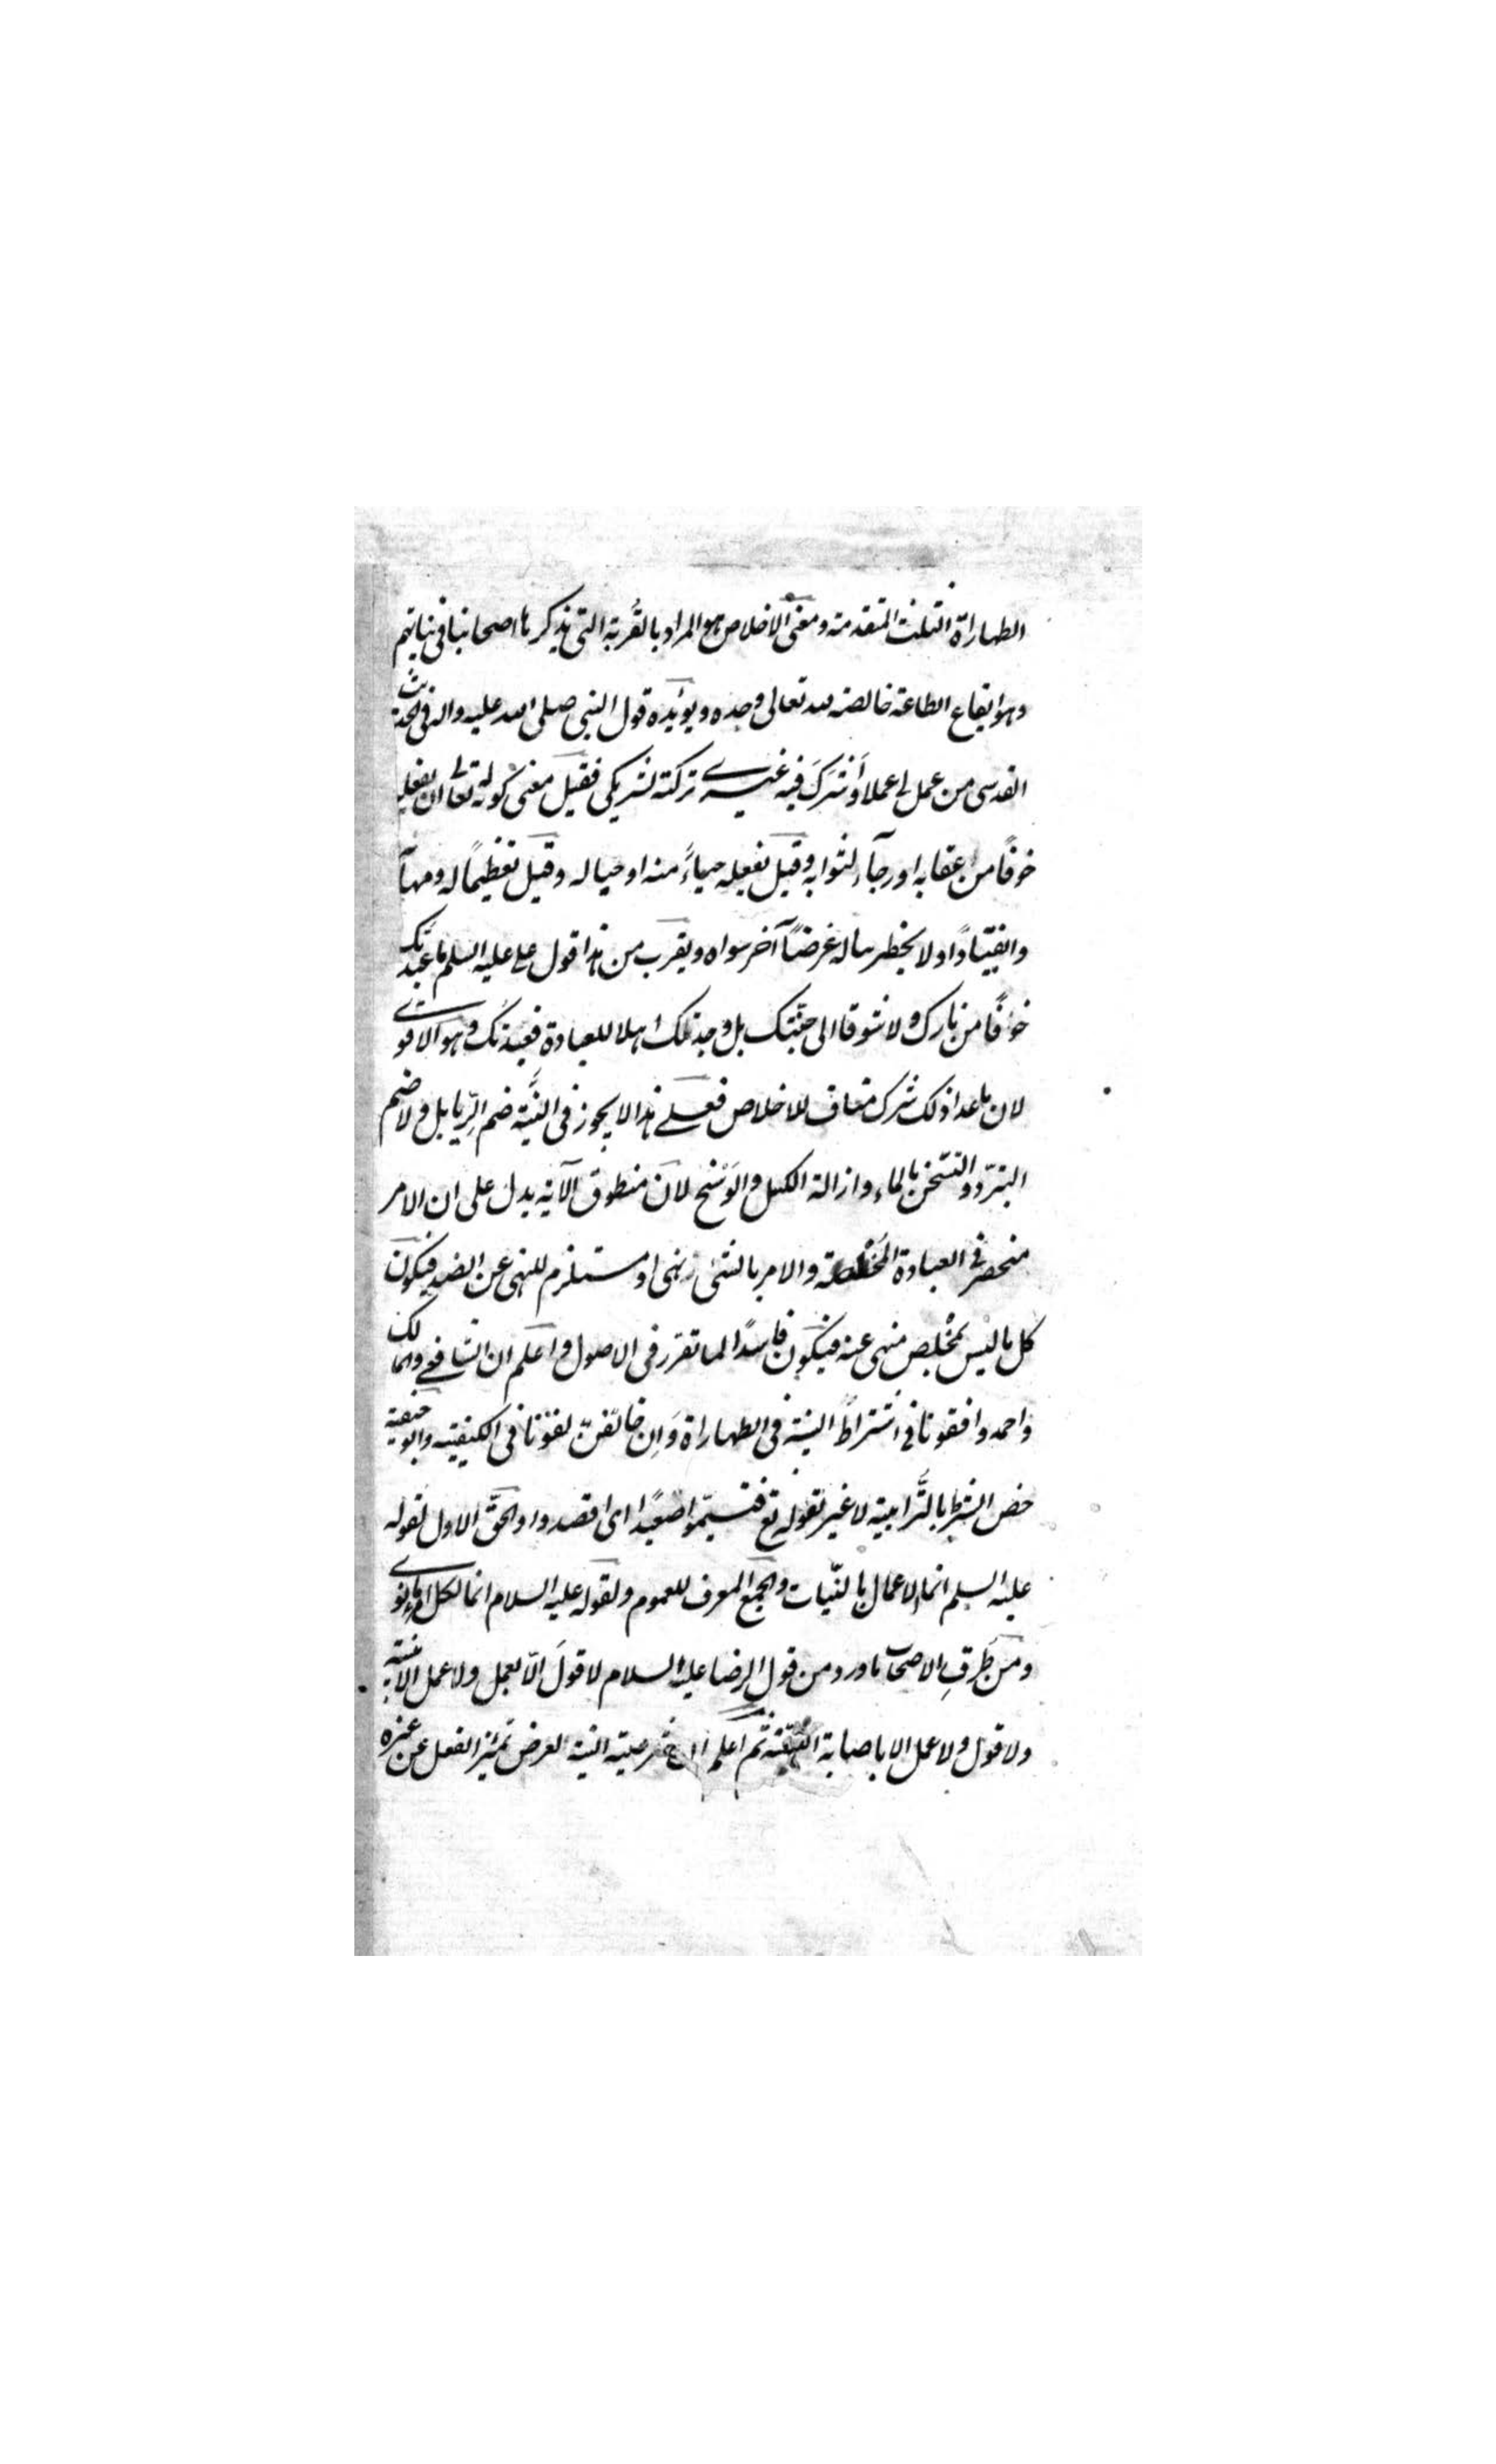 الطهاراة الثلث المتقدمة ومعنى الاخلاص هو المراد بالقُربة التى يذكرها اصحابنا فى نياتهم
وهو ايقاع الطاعة خالصة لله تعالى وحده ويؤيّده قول النبى صلى الله عليه واله فى الحديث
القدسى من عمل لى عملا وَاَشرَكَ فيه غيرى تركته لشريكى فقيل معنى كونه له تعالى ان يفعله
خوفًا من عقابه او رجآء لثوابه وقيل يفعله حياءً منه او حبا له وقيل تعظيمًا له ومهابة
وانقيادًا ولا يخطر بباله غرضًا آخر سواه ويقرب من هذا قول على عليه السلم ما عبدتك
خوفًا من نارك ولا شوقا الى جنّتك بل وجدتك اهلا للعبادة فعبدتك وهو الاقوى
لان ما عدا ذلك شرك مناف للاخلاص فعلى هذا لا يجوز فى النيّة ضم الرّيا بل ولا ضم
التبرّد والتسخن بالماء وازالة الكسل والوَسَخ لان منطوق الآية يدل على ان الامر
منحصر فى العبادة المخلصة والامر بالشئ نهى او مستلزم للنهى عن الضد فيكون
كل ما ليس بمُخْلِص منهى عنه فيكون فاسدًا لما تقرر فى الاصول واعلم ان الشافعى والمالك
واحمد وافقونا فى اشتراط النية فى الطهاراة وَاِن خالفونا فى الكيفيه وابو حنيفة
خص الشرط بالتُّرابية لا غير لقوله تع فتيمّموا صعيدًا اى اقصدوا والحقّ الاول لقوله
عليه السلم انما الاعمال بالنّيات والجمع المعرف للعموم ولقوله عليه السلام انما لكل امرء ما نوى
ومن طَرقِ الاصحاب ما ورد من قول الرضا عليه السلام لا قولَ الّا بعمل ولا عمل الا بنية
ولا قول ولا عمل الا باصابة السّنّة ثم اعلم ان شرعية النية لغرض تميّز الفعل عن غيره